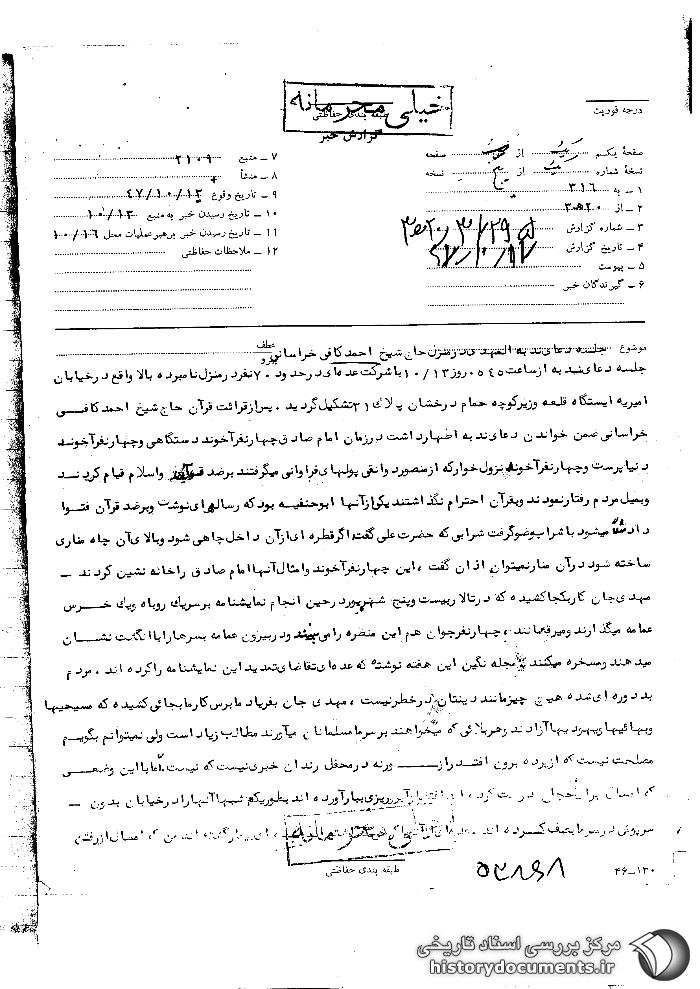 خیلی محرمانه
طبقه بندی حفاظتی
گزارش خبر
درجه فوریت
صفحه یکم از صفحه
نسخه شماره از پنج نسخه
۱ – به ۳۱۶
۲ – از ۲۰ ه‍ ۳
۳ – شماره گزارش
۴ – تاریخ گزارش
۵ – پیوست
۶ – گیرندگان خبر
۷ – منبع ۲۱۰۹
۸ – منشأ
۹ – تاریخ وقوع ۴۷/۱۰/۱۳
۱۰ – تاریخ رسیدن خبر به منبع ۱۰/۱۳
۱۱ – تاریخ رسیدن خبر برهبر عملیات محل ۱۰/۱۶
۱۲ – ملاحظات حفاظتی
موضوع جلسه دعای ندبه المهدی در منزل حاج شیخ احمد کافی خراسانی
عطف
پیرو
جلسه دعای ندبه از ساعت ۰۵۴۵ روز ۱۰/۱۳ با شرکت عده‌ای در حدود ۷۰ نفر در منزل نامبرده بالا واقع در خیابان
امیریه ایستگاه قلعه وزیر کوچه حمام درخشان پلاک ۳۱ تشکیل گردید . پس از قرائت قرآن حاج شیخ احمد کافی
خراسانی ضمن خواندن دعای ندبه اظهار داشت در زمان امام صادق چهار نفر آخوند دستگاهی و چهار نفر آخوند
دنیا پرست و چهار نفر آخوند نزول خوار که از منصور دوانقی پولهای فراوانی میگرفتند بر ضد قرآن و اسلام قیام کردند
و بمیل مردم رفتار نمودند و بقرآن احترام نگذاشتند یکی از آنها ابوحنفیه بود که رساله‌ای نوشت و بر ضد قرآن فتوا
داد میشود با شراب وضو گرفت شرابی که حضرت علی گفت اگر قطره ای از آن داخل چاهی شود و بالای آن چاه مناری
ساخته شود در آن منار نمیتوان اذان گفت ، این چهار نفر آخوند و امثال آنها امام صادق را خانه نشین کردند –
مهدی جان کار بکجا کشیده که در تالار بیست و پنج شهریور در حین انجام نمایشنامه بر سر یک روباه و یک خرس
عمامه میگذارند و میرقصانند ، چهار نفر جوان هم این منظره را می بینند و در بیرون عمامه بسرها را با انگشت نشان
میدهند و مسخره میکنند مجله نگین این هفته نوشته که عده‌ای تقاضای تمدید این نمایشنامه را کرده اند ، مردم
بد دوره ای شده هیچ چیز مانند دینتان در خطر نیست ، مهدی جان بفریاد ما برس کار ما بجائی کشیده که مسیحیها
و بهائیها و یهودیها آزادند و هر بلائی که میخواهند بر سر ما مسلمانان میآورند مطالب زیاد است ولی نمیتوانم بگویم
مصلحت نیست که از پرده برون افتد راز ــــــ ورنه در محفل رندان خبری نیست که نیست. آقا با این وضعی
که امسال برای حجاج درست کرده اند آبرو ریزی ببار آورده اند بطوریکه شبها آنها را در خیابان بدون –
سرپوش در سرما بصف کرده اند
خیلی محرمانه
طبقه بندی حفاظتی
۴۶–۱۳۰
مرکز بررسی اسناد تاریخی
historydocuments.ir